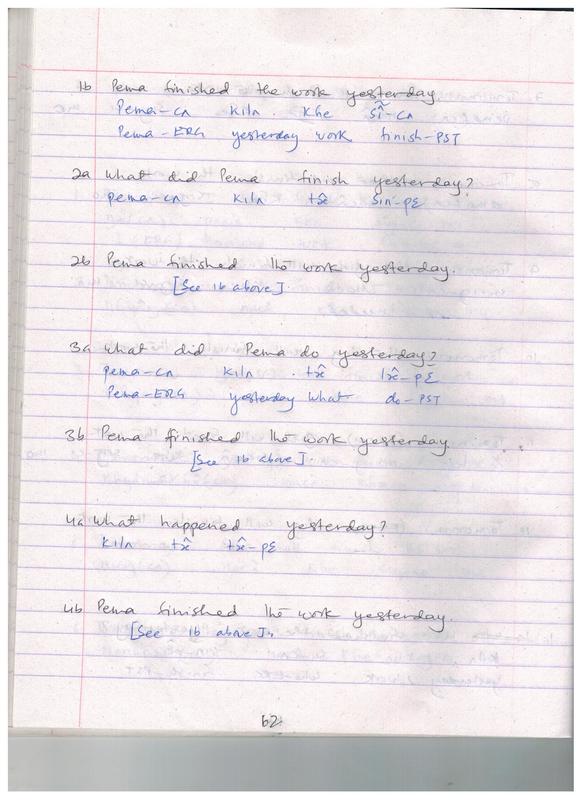 1b Pema finished the work yesterday.
Pema-cʌ kilʌ. khe sĩ-cʌ
Pema-ERG yesterday work finish-PST
2a What did Pema finish yesterday?
pema-cʌ kilʌ tɜ̂ sin-pɛ
2b Pema finished the work yesterday.
[See 1b above].
3a What did Pema do yesterday?
pema-cʌ kilʌ . tɜ̂ lɜ̂-pɛ
Pema-ERG yesterday what do-PST
3b Pema finished the work yesterday.
[See 1b above].
4a What happened yesterday?
kilʌ tɜ̂ tɜ̂-pɛ
4b Pema finished the work yesterday.
[See 1b above].
62